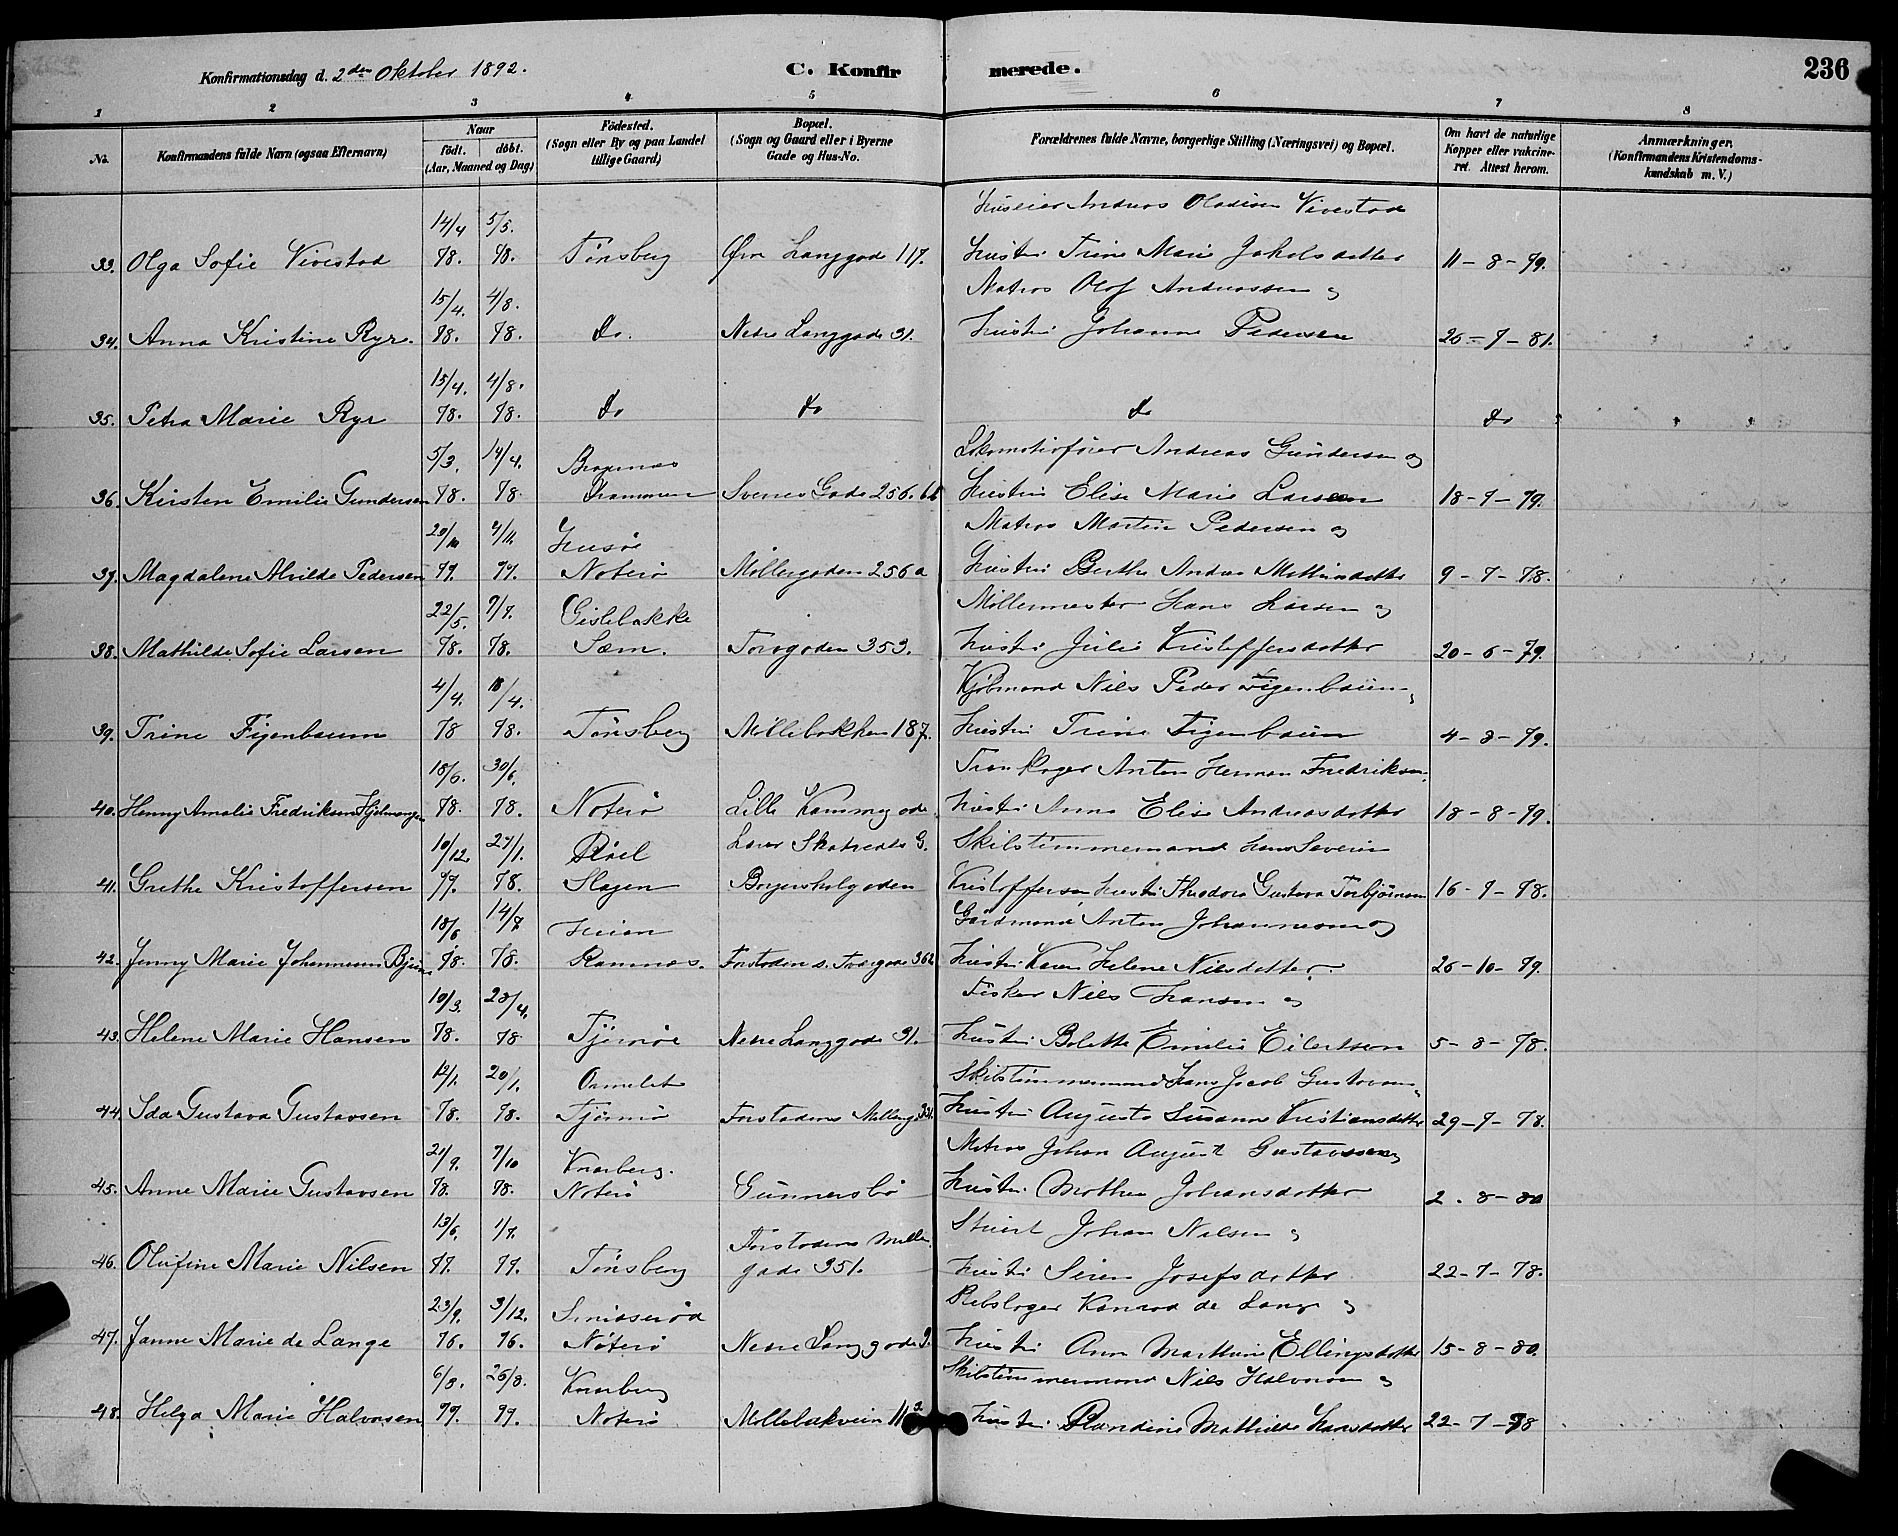 Konfirmationsdag d. 2den Oktober 1892. C. Konfirmerede. 236
1 2 3 4 5 6 7 8
No. Konfirmandens fulde Navn (ogsaa Efternavn) Naar født. døbt. (Aar, Maaned og Dag) Fødested. (Sogn eller By og paa Landet tillige Gaard) Bopæl. (Sogn og Gaard eller i Byerne Gade og Hus-No. Forældrenes fulde Navne, borgerlige Stilling (Næringsvei) og Bopæl. Om havt de naturlige Kopper eller vakcineret. Attest herom. Anmærkninger. (Konfirmandens Kristendomskundskab m. V.)
14/4 5/5. Andreas Vivestad
33. Olga Sofie Vivestad 78. 78. Tønsberg Øvre Langgade 117. Hustru Trine Marie Jakobsdatter 11-8-79.
15/4. 4/8. Matros Olof Andreassen og
34. Anna Kristine Ryr. 78. 78. Do. Nedre Langgade 31. Hustru Johanne Pedersen 26-7-81.
15/4. 4/8.
35. Petra Marie Ryr 78. 78. do do do do
5/3. 14/4. Bragernes Lokomotivfører Andreas Gundersen og
36. Kirsten Emilie Gundersen 78. 78. Drammen Svends Gade 256. Hustru Elise Marie Larsen 18-7-79.
Husøe Matros Martin Pedersen og
37. Magdalene Alvilde Pedersen 77. 77. Nøterø Møllergaden 256a Hustru Berthe Andrea 9-7-78.
22/5. 7/7. Gislebakke Møllermester Hans Larsen og
38. Mathilde Sofie Larsen 78. 78. Sæm. Torvgaden 353. Hustru Julie Kristoffersdatter 20-6-79.
4/4. 18/4. Kjøbmand Nils Peder Figenbaum,
39. Trine Figenbaum 78 78. Tønsberg Møllebakken 187. Hustru Trine Figenbaum 4-8-79.
18/6. 30/6. Anton Herman Fredriksen.
40. Henny Amalie Fredriksen 78. 78. Nøterø Lille Hustru Anna Elise Andreasdatter 18-8-79.
10/12. 27/1. Røel Skibstømmermand Hans Severin
41. Grethe Kristoffersen 77. 78. Slagen Kristoffersen Hustru Theodora Gustava Torbjørnsen 16-7-78.
18/6 14/7 Gårdmand Anton Johannesen og
42. Jenny Marie Johannesen 78. 78. Ramnes. Forstaden s. Torvgade 362 Hustru Karen Helene Nilsdatter. 26-10-79.
10/3. 28/4. Fisker Nils Hansen og
43. Helene Marie Hansen 78. 78 Tjømøe Nedre Langgade 31. Hustru Bolette Emilie Eilertsen 5-8-78.
12/1. 20/1. Ormelet Skibstømmermand Hans Jacob Gustavsen
44. Ida Gustava Gustavsen 78. 78. Tjømø Forstadens Hustru Augusta Susanne Kristiansdatter 29-7-78.
21/9. 7/10 Knarberg. Matros Johan August Gustavsen og
45. Anne Marie Gustavsen 78. 78. Nøterø Gunnersbø Hustru Mathea Johansdatter 2.-8-80
13/6. 1/7. Forstadens Møller Stuert Johan Nilsen og
46. Olufine Marie Nilsen 77. 77. Tønsberg gade 351. Hustru Siren Josefsdatter 22-7-78.
23/9. 3/12. Smidserød Rebslager Konrad de Lange og
47. Janne Marie de Lange 76. 76. Nøterø Nedre Langgade 9. Hustru Ann Marthine Ellingsdatter 15-8-80.
6/8. 26/8. Knarberg Skibstømmermand Nils Halvorsen og
48. Helga Marie Halvorsen 77. 77. Nøterø Møllebakveien 113. Hustru Randine Mathilde Hansdatter 22-7-78